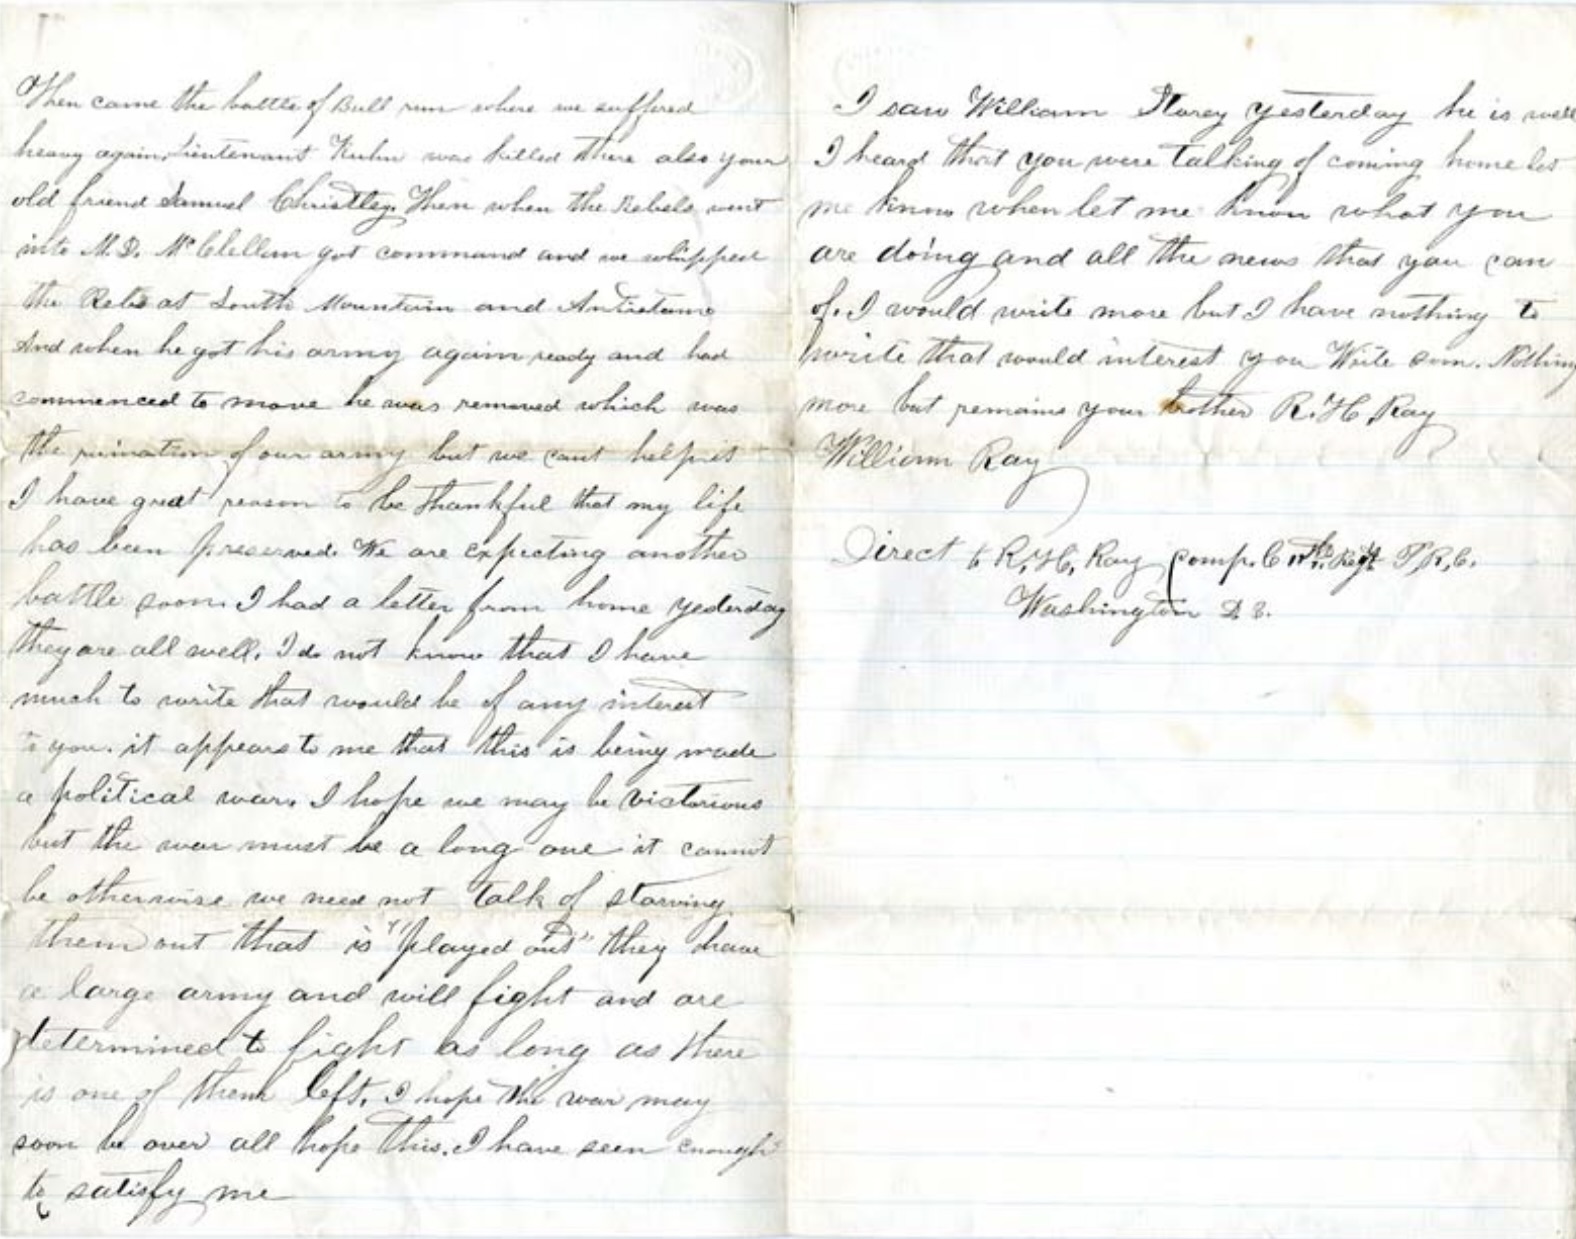 Then came the battle of Bull run where we suffered
heavy again. Lieutenant Kuhn was killed there also your
old friend Samuel Christley. Then when the Rebels went
into M.D. McClellan got command and we whipped
the Rebs at South Mountain and Antietame
And when he got his army again ready and had
commenced to move he was removed which was
the ruination of our army but we cant help it
I have great reason to be thankful that my life
has been preserved. We are expecting another
battle soon. I had a letter from home yesterday
they are all well. I do not know that I have
much to write that would be of any interest
to you. it appears to me that this is being made
a political war. I hope we may be victorious
but the war must be a long one it cannot
be otherwise we need not talk of starving
them out that is "played out" they have
a large army and will fight and are
determined to fight as long as there
is one of them left. I hope the war may
soon be over all hope this. I have seen enough
to satisfy me
I saw William Storey yesterday he is well
I heard that you were talking of coming home let
me know when let me know what you
are doing and all the news that you can
of. I would write more but I have nothing to
write that would interest you Write soon. Nothing
more but remains your brother R. H. Ray
William Ray
Direct to R. H. Ray comp. C Regt P. R. C.
Washington D C.